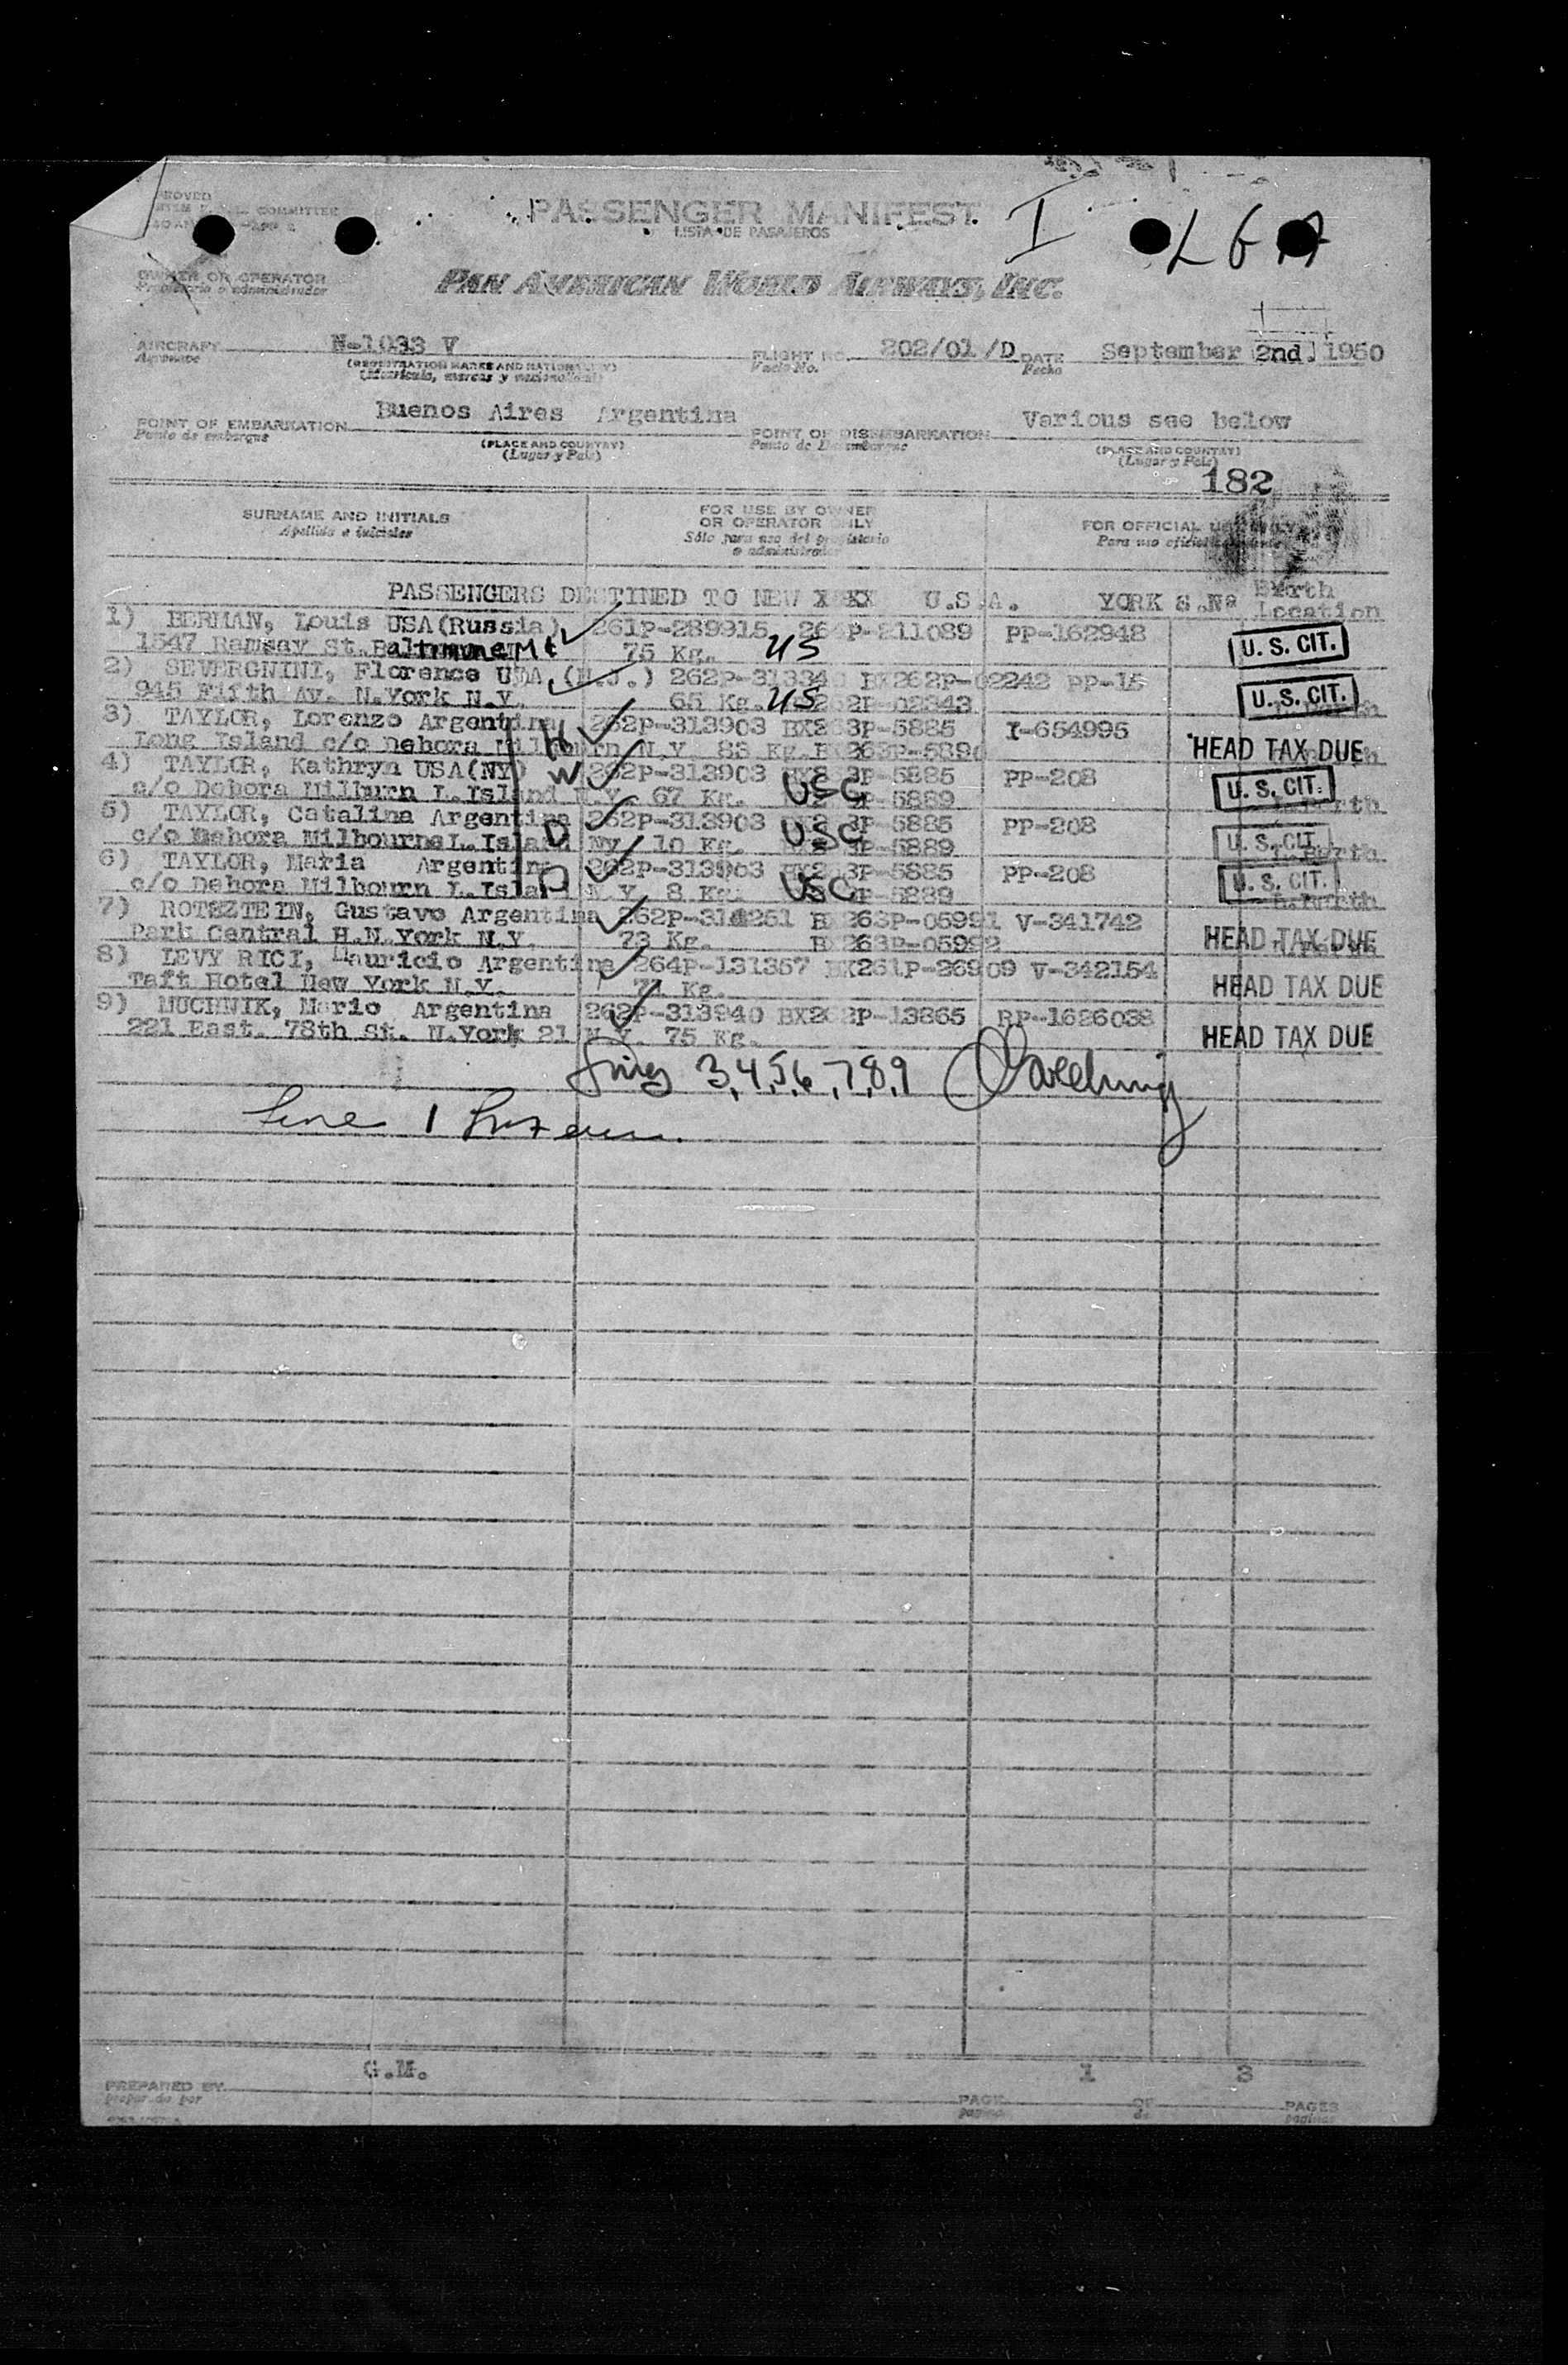 PASSENGER MANIFEST I L G A
LISTA DE PASAJEROS
OWNER OR OPERATOR
Propietario o administrador
PAN AMERICAN WORLD AIRWAYS, INC.
AIRCRAFT N-1033 V FLIGHT NO. 202/01/D DATE September 2nd. 1950
Aeronave (REGISTRATION MARKS AND NATIONALITY) Vuelo No. Fecha
(Matrícula, marcas y nacionalidad)
POINT OF EMBARKATION Buenos Aires Argentina POINT OF DISEMBARKATION Various see below
Punto de embarque (PLACE AND COUNTRY) Punto de Desembarque (PLACE AND COUNTRY)
(Lugar y País) (Lugar y País)
182
SURNAME AND INITIALS FOR USE BY OWNER OR OPERATOR ONLY FOR OFFICIAL USE ONLY
Apellido e iniciales Sólo para uso del propietario o administrador Para uso oficial
PASSENGERS DESTINED TO NEW U.S.A. YORK S.Nº Berth Location
1) BERMAN, Louis USA(Russia) 261P-289915 264P-211089 PP-162948
1547 Ramsay St. 75 Kg. US U. S. CIT.
2) SEVERGNINI, Florence USA (N.J.) 262P-31334 BX262P-02242 PP-15
945 Fifth Av. N.York N.Y. 65 Kg. US 262P-02343 U. S. CIT.
3) TAYLOR, Lorenzo Argentina H 262P-313903 BX263P-5885 I-654995
Long Island c/o Debora Milbourn N.Y. 83 Kg. 263P-5890 HEAD TAX DUE
4) TAYLOR, Kathryn USA(NY) W 262P-313903 3P-5885 PP-208
c/o Debora Milburn L.Island N.Y. 67 Kg. USC P-5889 U. S. CIT.
5) TAYLOR, Catalina Argentina D 262P-313903 3P-5885 PP-208
c/o Debora Milbourne L.Island Ny. 10 Kg. USC P-5889 U. S. CIT.
6) TAYLOR, Maria Argentina D 262P-313903 3P-5885 PP-208
c/o Debora Milbourn L.Island N.Y. 8 Kg. USC P-5889 U. S. CIT.
7) ROTSZTEIN, Gustavo Argentina BX263P-05991 V-341742
Park Central H.N.York N.Y. 73 Kg. BX263P-05992 HEAD TAX DUE
8) LEVY RICI, Mauricio Argentina 264P-131357 BX261P-26909 V-342154
Taft Hotel New York N.Y. 71 Kg. HEAD TAX DUE
9) MUCHNIK, Mario Argentina 262P-313940 P-13865 RP-1626038
221 East. 78th St. N.York 21 N.Y. 75 Kg. HEAD TAX DUE
3,4,5,6,7,8,9
Line 1
G.M. 1 3
PREPARED BY PAGE OF PAGES
preparado por página de páginas